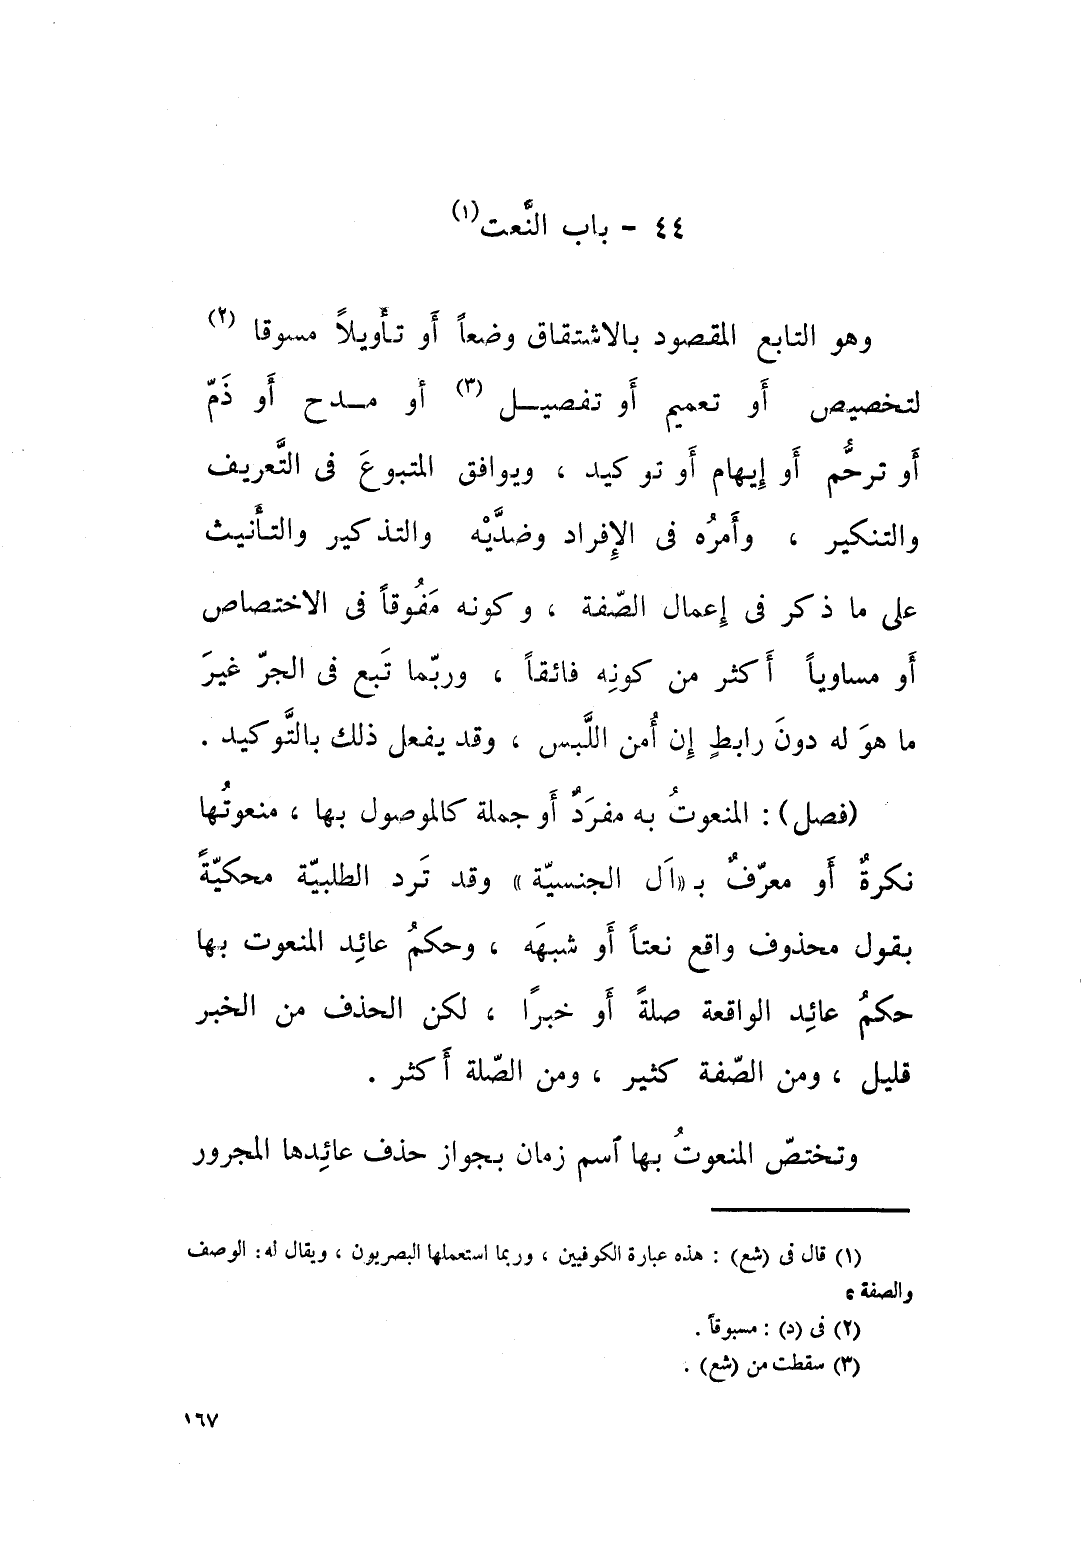 ٤٤ - باب النَّعت(١)
وهو التابع المقصود بالاشتقاق وضعاً أَو تأْويلاً مسوقا (٢)
لتخصيص أَو تعميم أَو تفصيـل (٣) أو مـدح أَو ذَمّ
أَو ترحُّم أَو إيهام أَو توكيد ، ويوافق المتبوعَ فى التَّعريف
والتنكير ، وأَمرُه فى الإِفراد وضدَّيْه والتذكير والتأْنيث
على ما ذكر فى إِعمال الصّفة ، وكونه مَفُوقاً فى الاختصاص
أَو مساوياً أَكثر من كونِه فائقاً ، وربّما تَبع فى الجرّ غيرَ
ما هوَ له دونَ رابطٍ إِن أُمن اللَّبس ، وقد يفعل ذلك بالتَّوكيد .
(فصل) : المنعوتُ به مفرَدٌ أَو جملة كالموصول بها ، منعوتُها
نكرةٌ أَو معرّفٌ بـ «اَل الجنسيّة» وقد تَرد الطلبيّة محكيّةً
بقول محذوف واقع نعتاً أَو شبهَه ، وحكمُ عائِد المنعوت بها
حكمُ عائِد الواقعة صلةً أَو خبرًا ، لكن الحذف من الخبر
قليل ، ومن الصّفة كثير ، ومن الصّلة أَكثر .
وتختصّ المنعوتُ بها ٱسم زمان بجواز حذف عائِدها المجرور
(١) قال فى (شع) : هذه عبارة الكوفيين ، وربما استعملها البصريون ، ويقال له : الوصف
والصفة ،
(٢) فى (د) : مسبوقاً .
(٣) سقطت من (شع) .
١٦٧